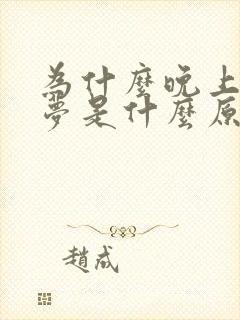 為什麼晚上
夢是什麼原
趙成